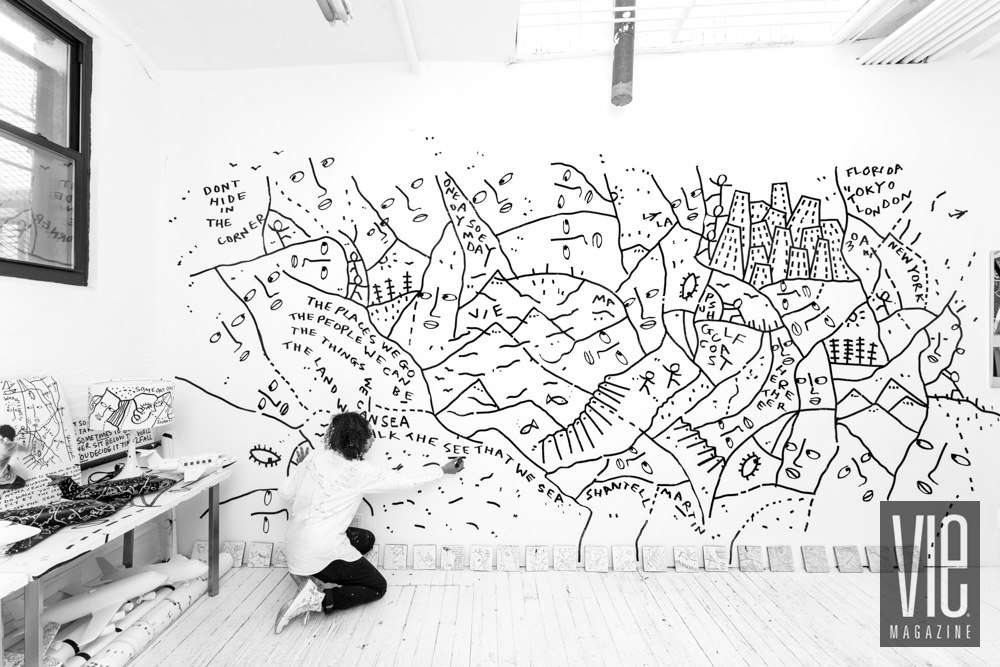 DONT
HIDE
IN
THE
CORNER
ONE DAY SOME DAY
LA
FLORIDA
TOKYO
LONDON
NEW YORK
VIE
MA
GULF
COAST
THE PLACES WE GO
THE PEOPLE WE CAN BE
THE THINGS WE CAN SEA
THE LAND
WALK THE SEE THAT WE SEA
SHANTELL MARTIN
HERE
THERE
SOMEDAY
SOMETIMES
VIE
MAGAZINE